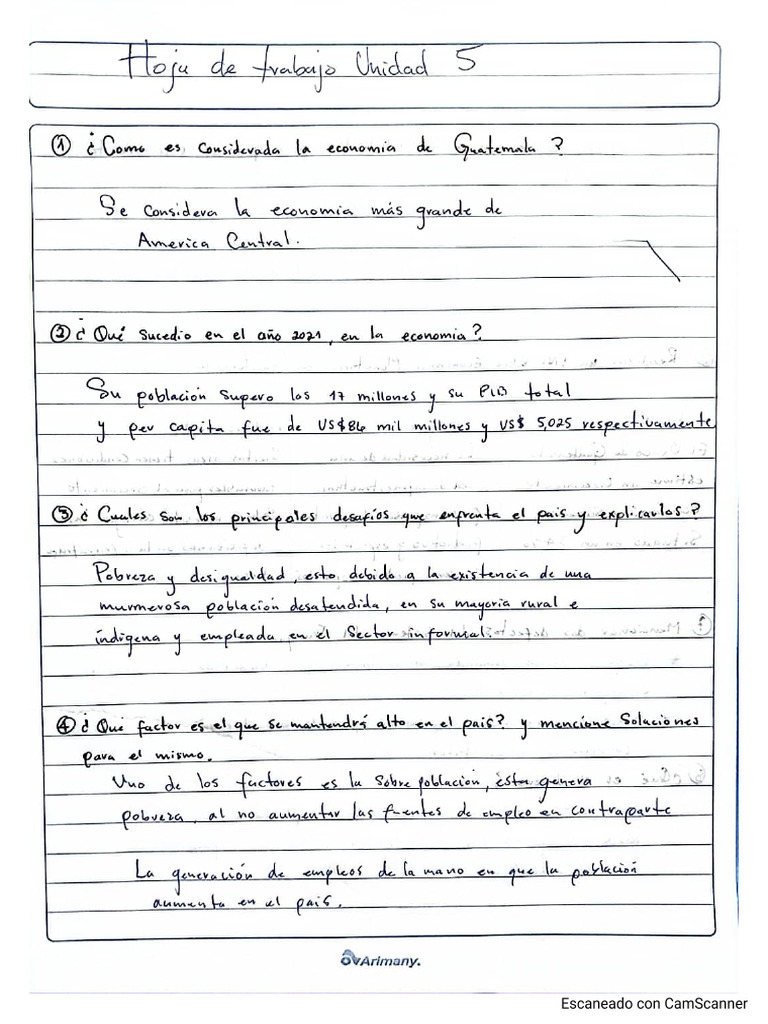 Hoja de trabajo Unidad 5
① ¿Como es considerada la economia de Guatemala?
Se considera la economia más grande de
America Central.
② ¿Qué sucedio en el año 2021, en la economia?
Su población supero los 17 millones y su PIB total
y per capita fue de US$86 mil millones y US$ 5,025 respectivamente
③ ¿Cuales son los principales desafíos que enfrenta el pais y explicarlos?
Pobreza y desigualdad, esto debido a la existencia de una
murmerosa población desatendida, en su mayoria rural e
indígena y empleada en el Sector informal.
④ ¿Qué factor es el que se mantendrá alto en el pais? y mencione Soluciones
para el mismo.
Uno de los factores es la Sobre población, ésta genera
pobreza, al no aumentar las fuentes de empleo en contraparte
La generación de empleos de la mano en que la población
aumenta en el pais.
Arimany.
Escaneado con CamScanner